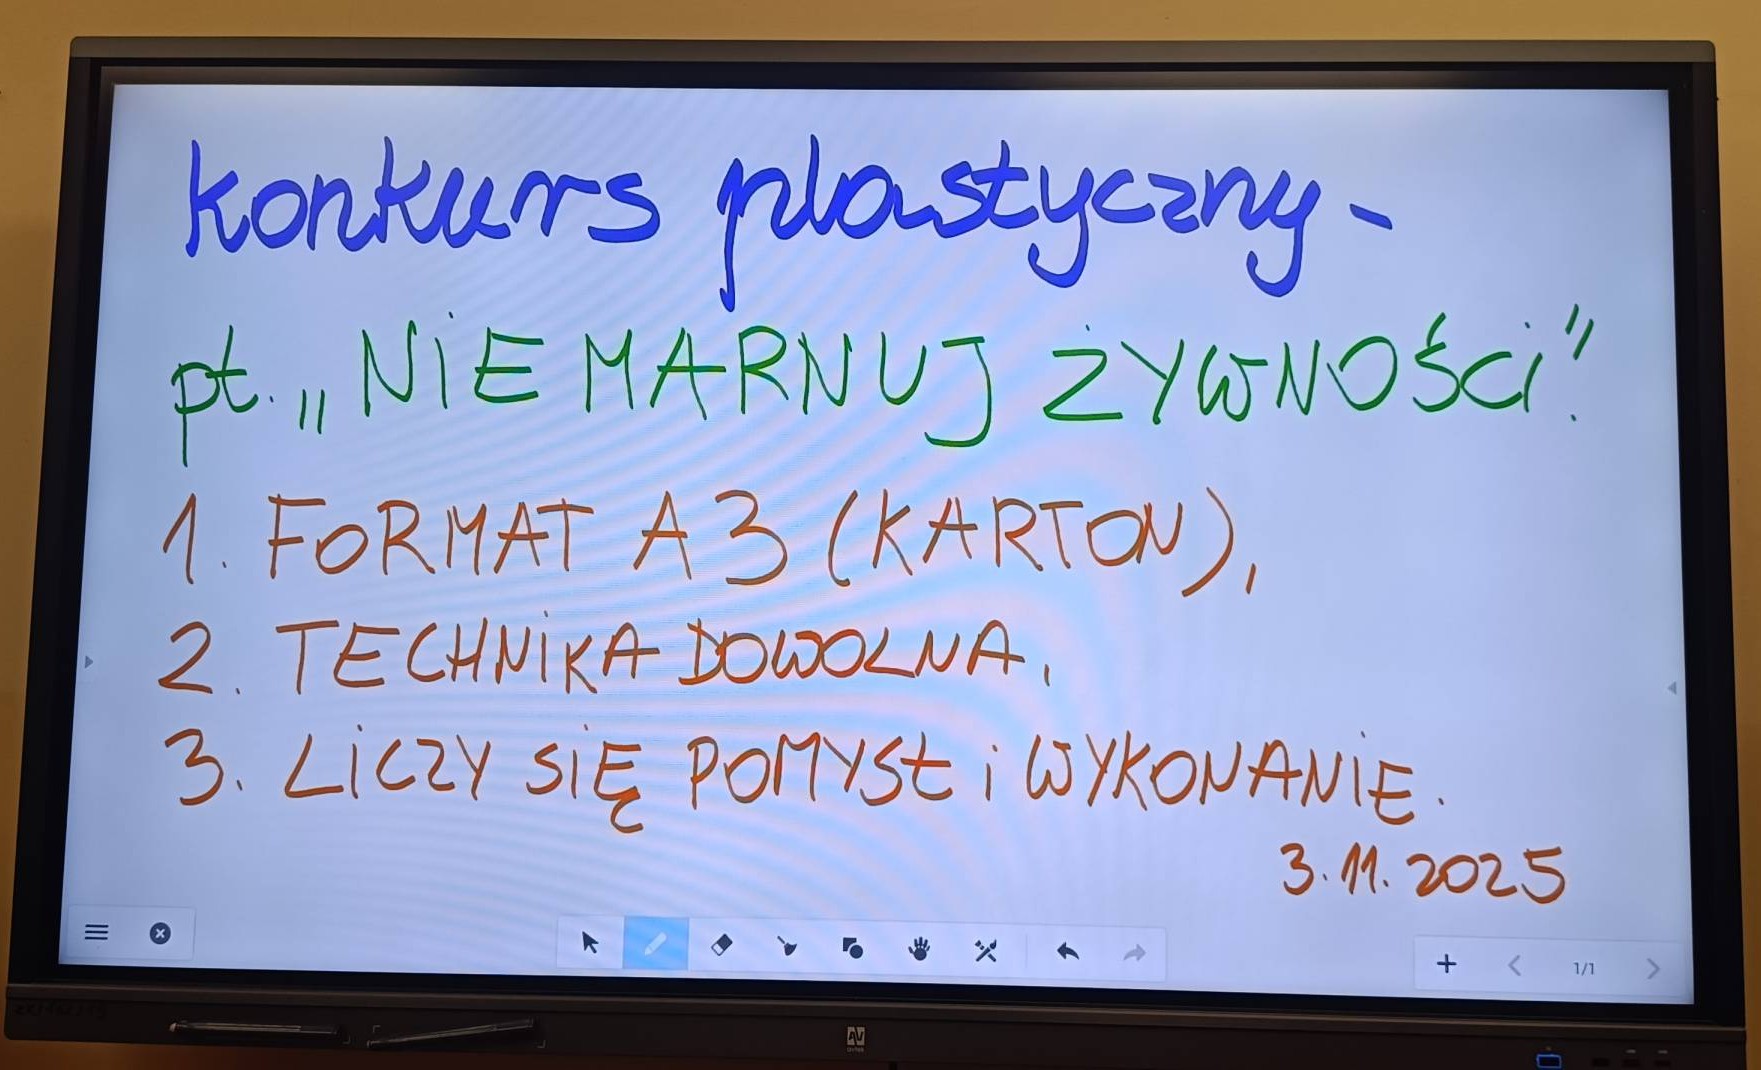 konkurs plastyczny -
pt. „NIE MARNUJ ŻYWNOŚCI".
1. FORMAT A3 (KARTON),
2. TECHNIKA DOWOLNA,
3. LICZY SIĘ POMYSŁ i WYKONANIE.
3.11.2025
1/1